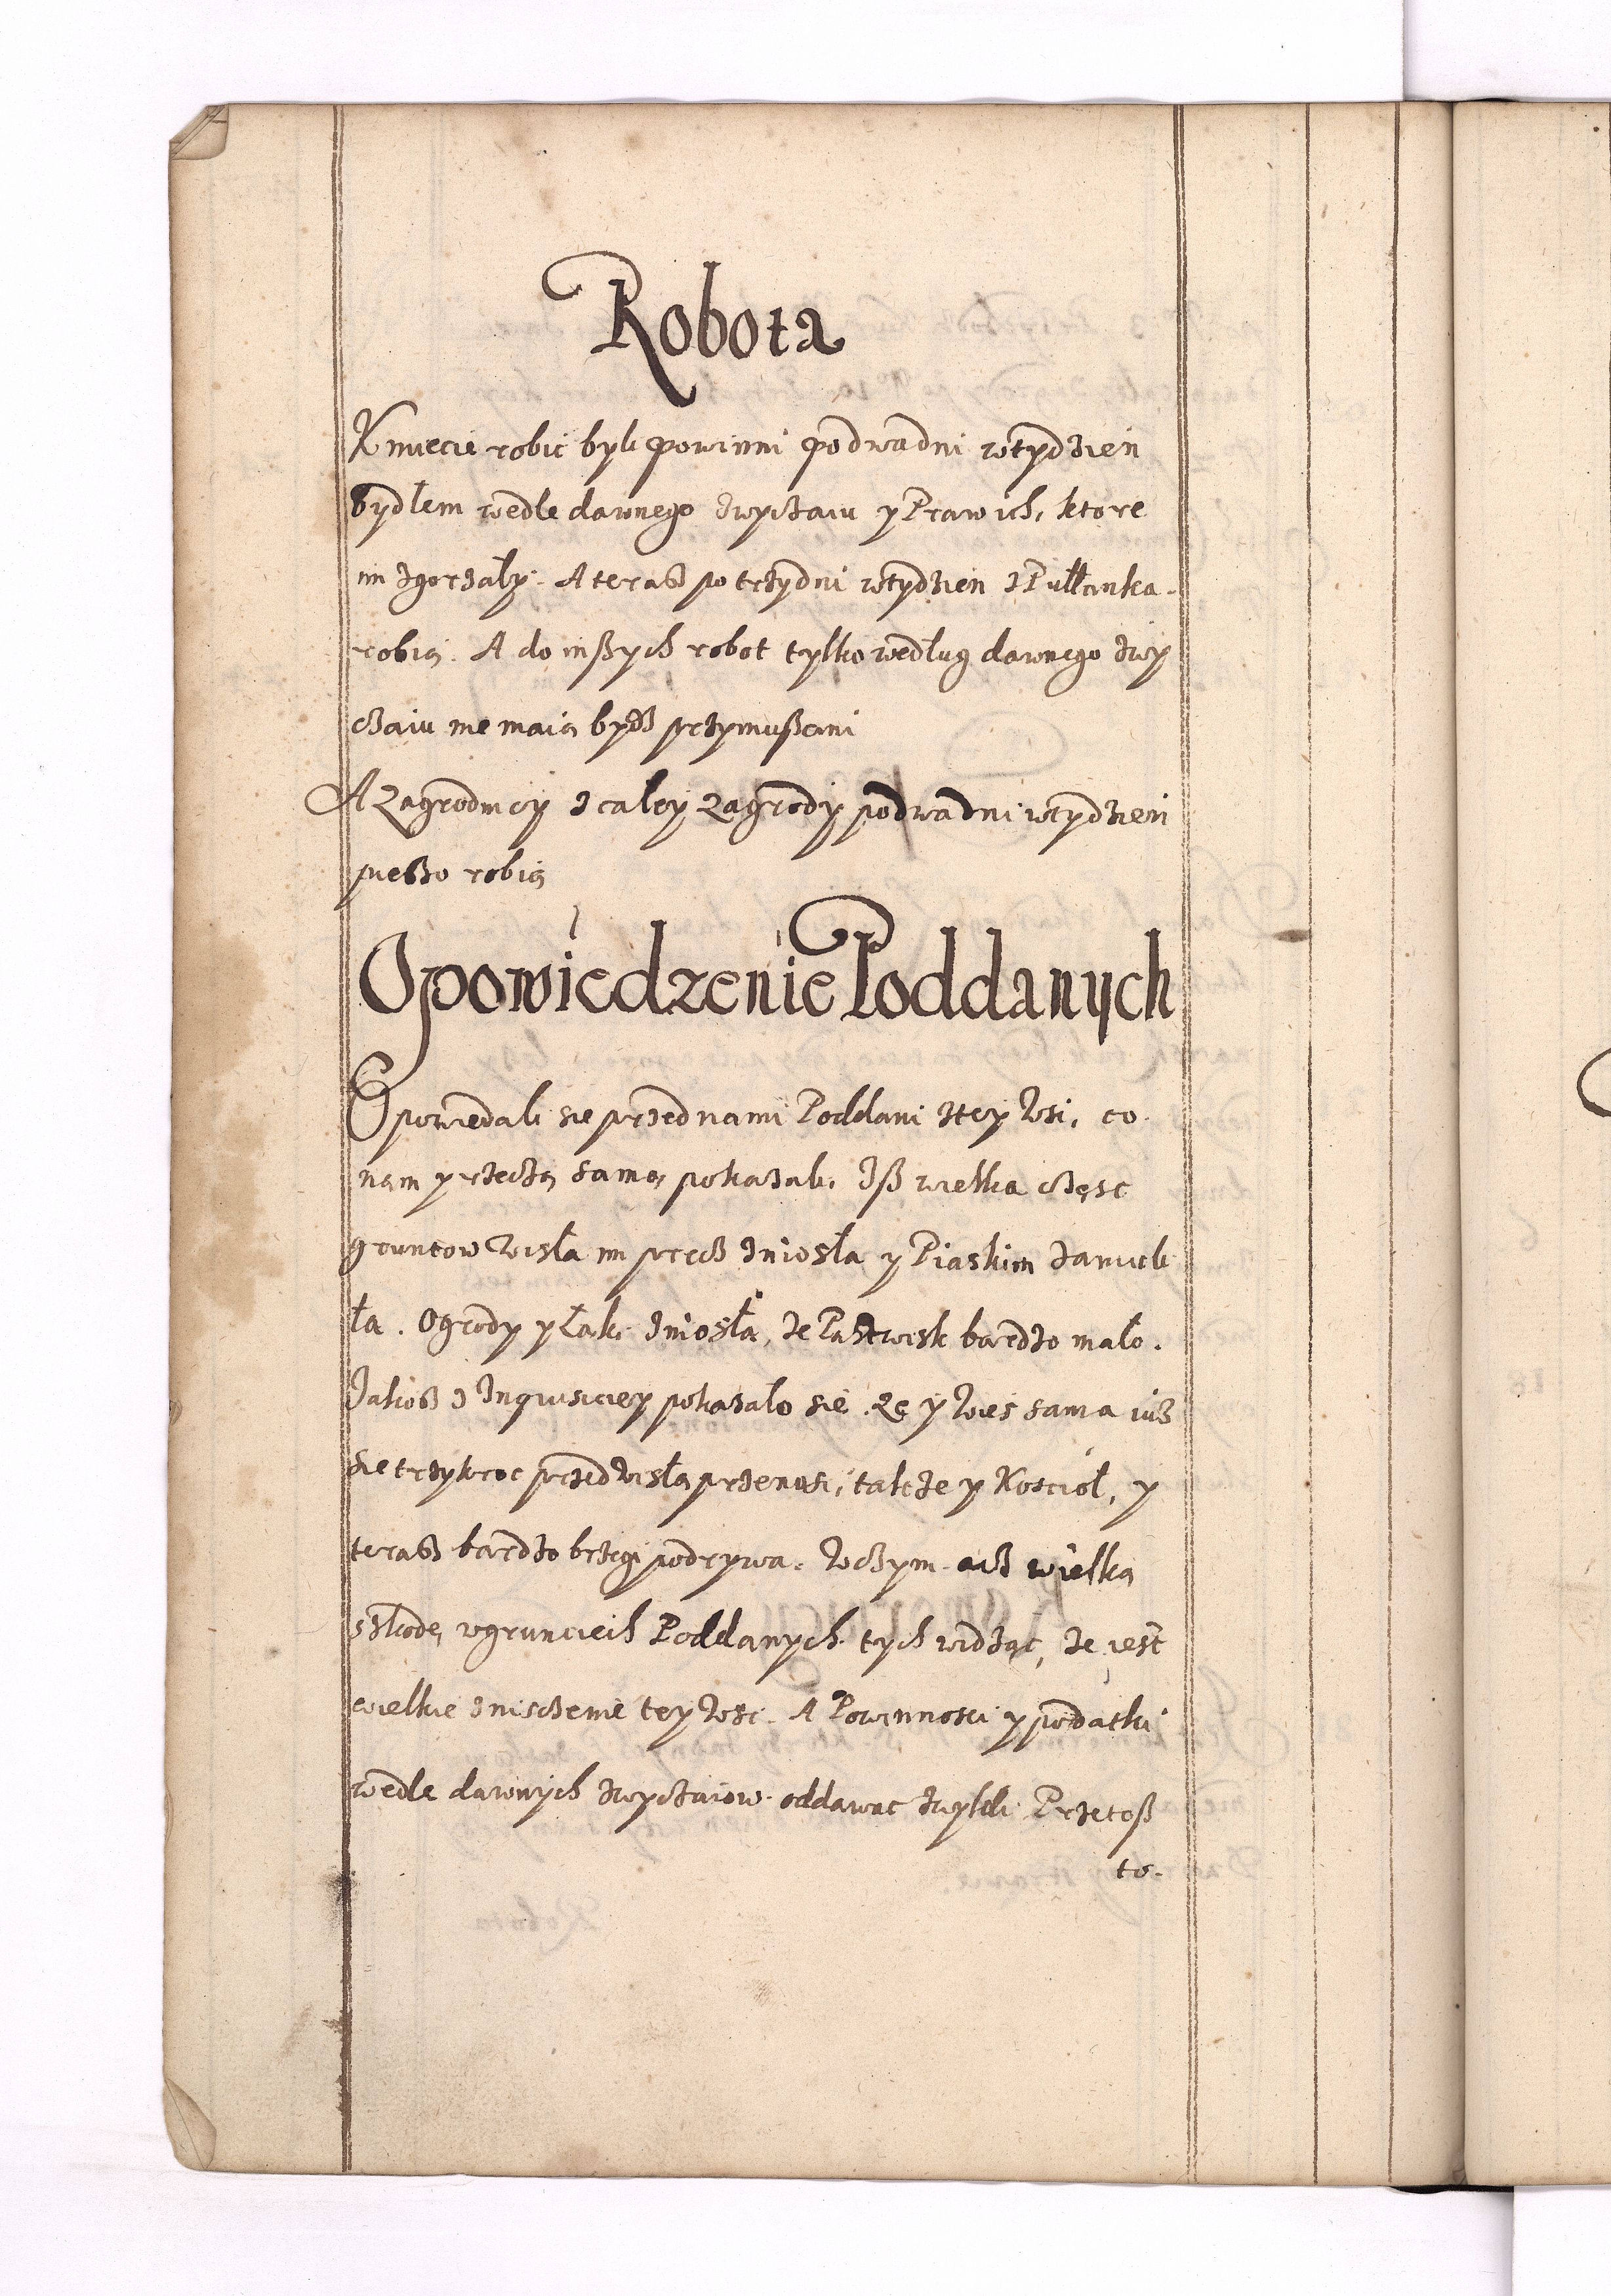 Robota
Kmiecie robić byli powinni po dwa dni w tydzień
bydłem wedle dawnego zwyczaiu y Praw ich, ktore
im zgorzały. A teras po trzy dni w tydzień z Pułłanka
robią. A do inßych robot tylko według dawnego zwy
czaiu nie maią bydź przymußeni
A Zagrodnicy z całey Zagrody po dwa dni w tydzień
pießo robią
Opowiedzenie Poddanych
Opowiedali sie przed nami Poddani z tey Wsi, co
nam y rzeczą samą pokazali. Iß wielka część
gruntow Wisła im precz zniosła y Piaskiem zamieli
ła. Ogrody y Łąki zniosła, że Pastwisk bardzo mało.
Jakoß z Inquisiciey pokazało sie. Że y Wieś sama iuż
sie trzykroć przed Wisłą przenosi, także y Kościoł, y
teraß bardzo brzegi podrywa. W czym acz wielką
szkodę w grunciech Poddanych tych widząc, że iest
wielkie zniszczenie tey Wsi. A Powinności y podatki
wedle dawnych zwyczaiow oddawać zwykli. Przetoß
to.